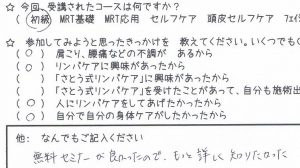 ☆ 今回、受講されたコースは何ですか?
初級 MRT基礎 MRT応用 セルフケア 頭皮セルフケア フェイ
☆ 参加してみようと思ったきっかけを 教えてください。いくつでも
○ ) 肩こり、腰痛などの不調が あるから
○ ) リンパケアに興味があったから
) 「さとう式リンパケア」に興味があったから
) 「さとう式リンパケア」を受けたことがあって、自分も施術出
○ ) 人にリンパケアをしてあげたかったから
○ ) 自分で自分の身体ケアがしたかったから
他: なんでもご記入ください
無料セミナーが良かったので、もっと詳しく知りたくなった